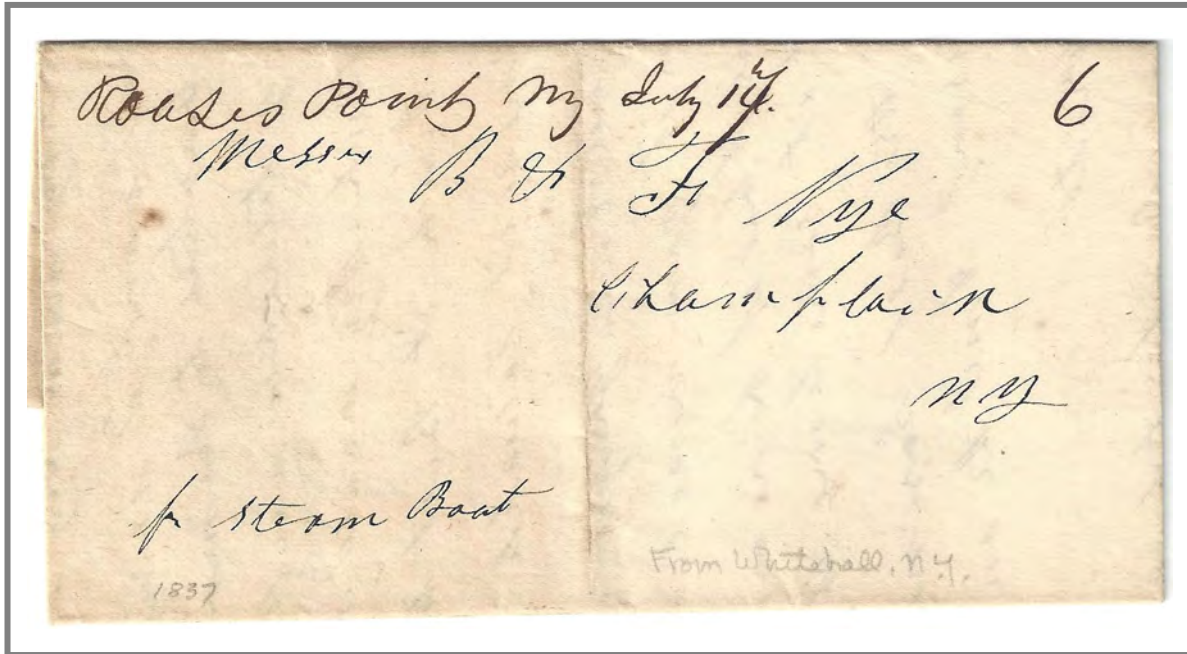 Rouses Point Ny July 14. 6
Messrs B & F Nye
Champlain
NY
pr Steam Boat
From Whitehall, N.Y.
1837